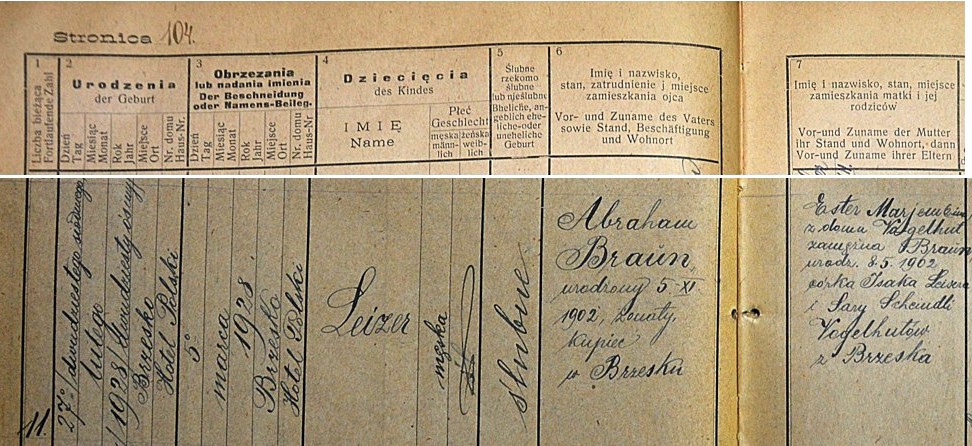 Stronica 104.
1
Liczba bieżąca
Fortlaufende Zahl
2
Urodzenia
der Geburt
Dzień
Tag
Miesiąc
Monat
Rok
Jahr
Miejsce
Ort
Nr. domu
Haus-Nr.
3
Obrzezania
lub nadania imienia
Der Beschneidung
oder Namens-Beileg.
Dzień
Tag
Miesiąc
Monat
Rok
Jahr
Miejsce
Ort
Nr. domu
Haus-Nr.
4
Dziecięcia
des Kindes
IMIĘ
Name
Płeć
Geschlecht
męska
männ-
lich
żeńska
weib-
lich
5
Ślubne
rzekomo
ślubne
lub nieślubne
Eheliche, an-
geblich ehe-
liche-oder
uneheliche
Geburt
6
Imię i nazwisko,
stan, zatrudnienie i miejsce
zamieszkania ojca
Vor- und Zuname des Vaters
sowie Stand, Beschäftigung
und Wohnort
7
Imię i nazwisko, stan, miejsce
zamieszkania matki i jej
rodziców
Vor-und Zuname der Mutter
ihr Stand und Wohnort, dann
Vor-und Zuname ihrer Eltern
11.
27 / dwudziestego siódmego
lutego
1928 / dwudziesty ósmy
Brzesko
Hotel Polski
5
marca
1928
Brzesko
Hotel Polski
Leizer
męska
ślubne
Abraham
Braun,
urodzony 5 XI
1902, żonaty,
kupiec
w Brzesku
Ester Marjem
z domu Vogelhut
zamężna Braun
urodz. 8.5.1902
córka Isaka Leisera
i Sary Scheindli
Vogelhutów
z Brzeska